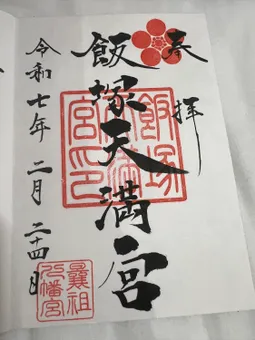 奉拝
飯塚天満宮
飯塚天満宮印
令和七年二月二十四日
曩祖八幡宮